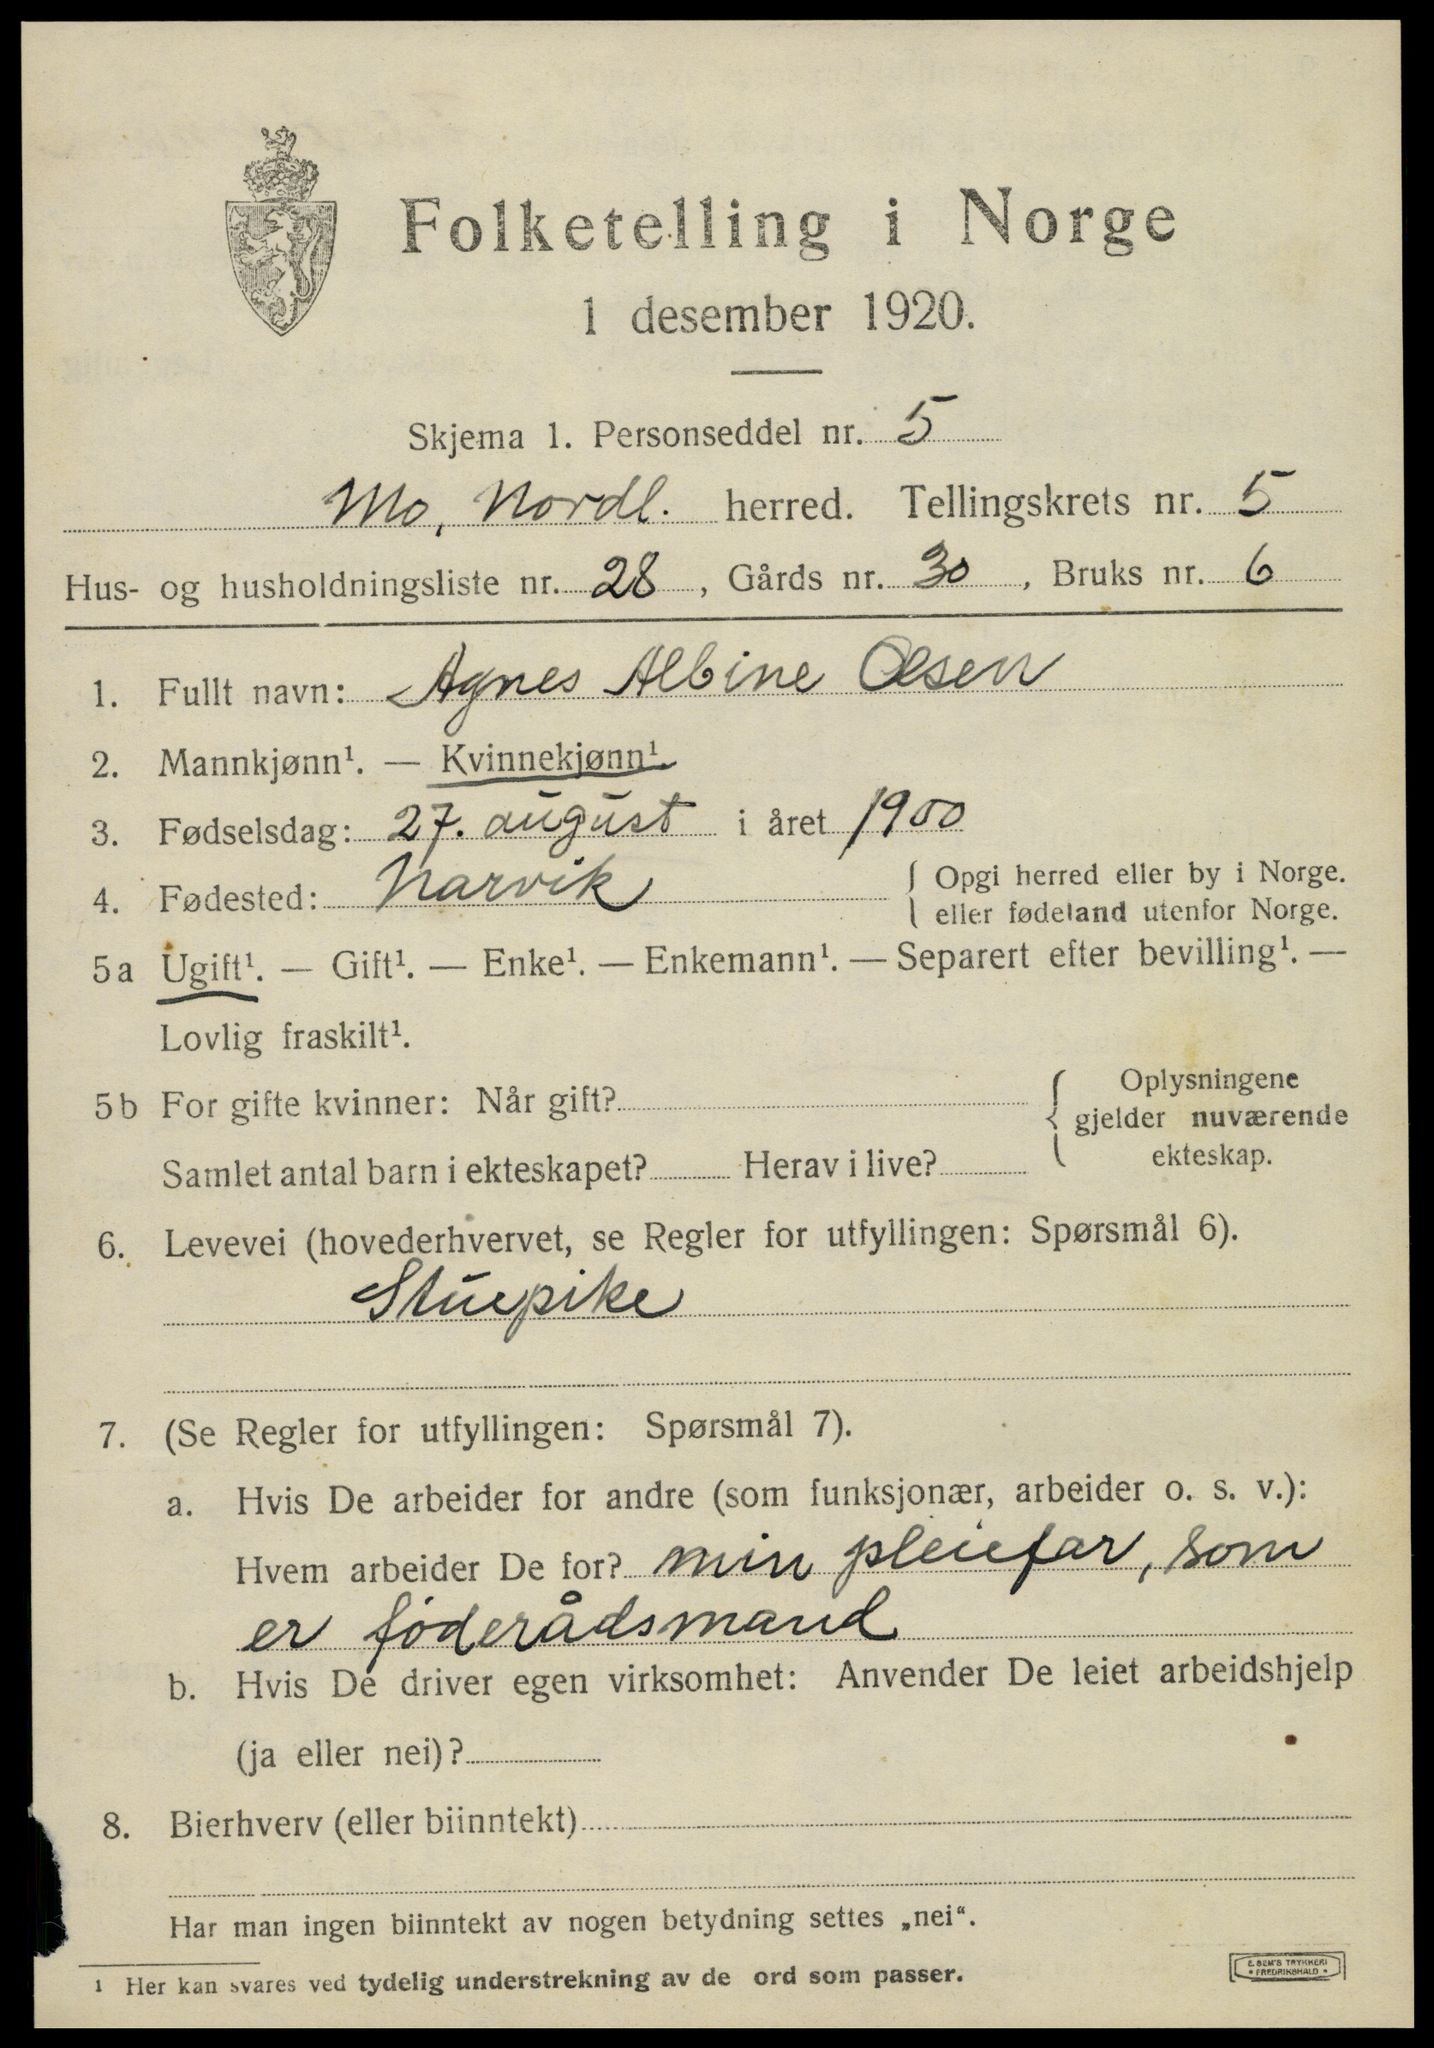 Folketelling i Norge
1 desember 1920.
Skjema 1. Personseddel nr. 5
Mo, Nordl. herred. Tellingskrets nr. 5
Hus- og husholdningsliste nr. 28, Gårds nr. 30, Bruks nr. 6
1. Fullt navn: Agnes Albine Olsen
2. Mannkjønn¹. — Kvinnekjønn¹.
3. Fødselsdag: 27. august i året 1900
4. Fødested: Narvik { Opgi herred eller by i Norge.
eller fødeland utenfor Norge.
5a Ugift¹. — Gift¹. — Enke¹. — Enkemann¹. — Separert efter bevilling¹. —
Lovlig fraskilt¹.
5b For gifte kvinner: Når gift? { Oplysningene
gjelder nuværende
Samlet antal barn i ekteskapet? Herav i live? ekteskap.
6. Levevei (hovederhvervet, se Regler for utfyllingen: Spørsmål 6).
Stuepike
7. (Se Regler for utfyllingen: Spørsmål 7).
a. Hvis De arbeider for andre (som funksjonær, arbeider o. s. v.):
Hvem arbeider De for? min pleiefar, som
er føderådsmand
b. Hvis De driver egen virksomhet: Anvender De leiet arbeidshjelp
(ja eller nei)?
8. Bierhverv (eller biinntekt)
Har man ingen biinntekt av nogen betydning settes „nei“.
¹ Her kan svares ved tydelig understrekning av de ord som passer.
E. SEM'S TRYKKERI
• FREDRIKSHALD •